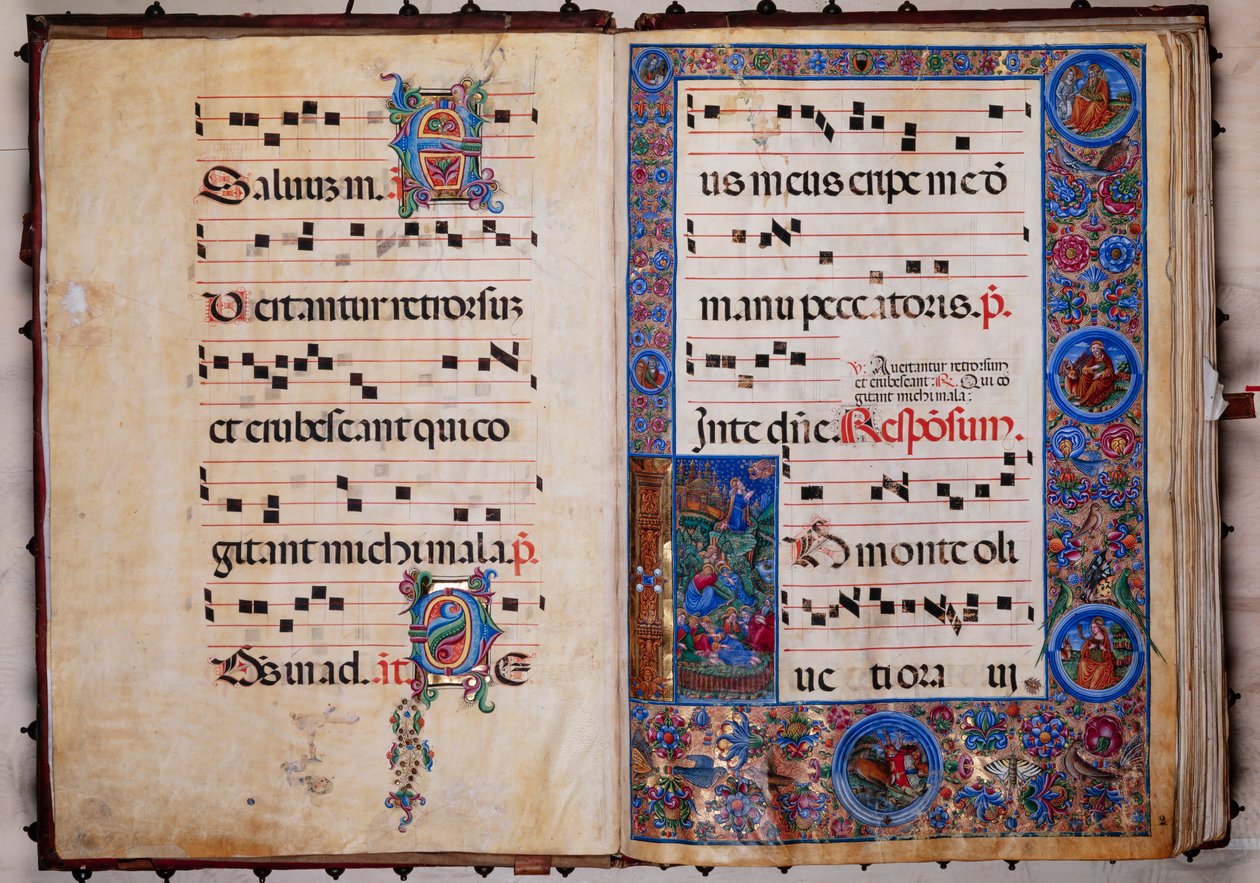 Saluuz m. p̃. A
Uertantur retrorsuz
et erubescant qui co
gitant michi mala. p̃.
Ds in ad. añ. D E
us meus eripe me d̄
manu peccatoris. p̃.
V: Auertantur retrorsum
et erubescant: R. Qui co
gitant michi mala:
In te dñe. Respōsum.
N monte oli
ue ti ora uij
2